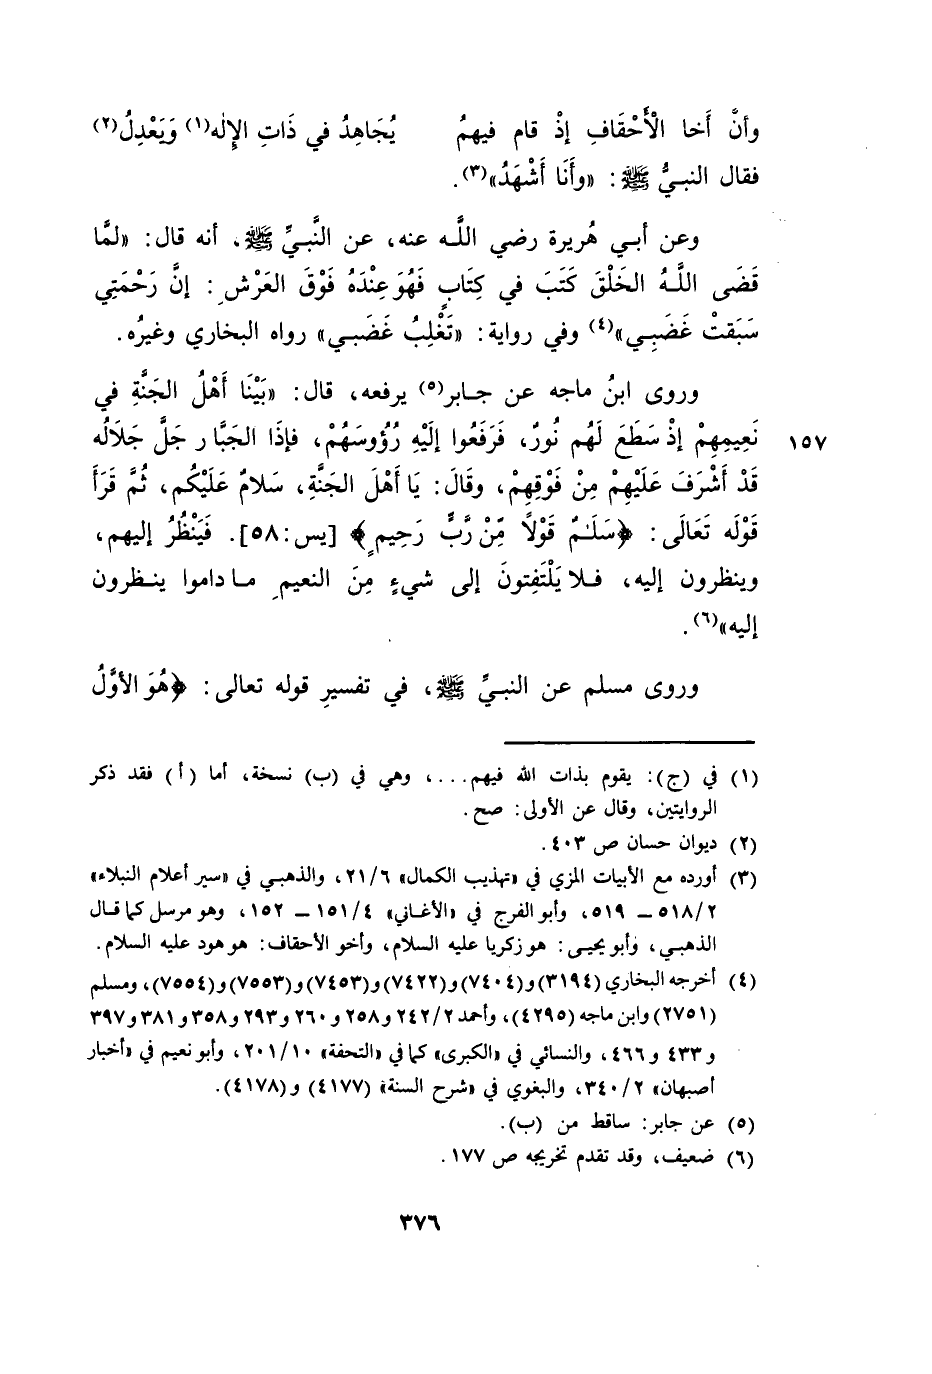 وأنَّ أَخا الْأَحْقَافِ إذْ قام فيهمُ يُجَاهِدُ في ذَاتِ الإِلٰه(١) وَيَعْدِلُ(٢)
فقال النبيُّ ﷺ: «وأَنَا أَشْهَدُ»(٣).
وعن أبي هُريرة رضي اللَّه عنه، عن النَّبيِّ ﷺ، أنه قال: «لمَّا
قَضَى اللَّهُ الخَلْقَ كَتَبَ في كِتَابٍ فَهُوَ عِنْدَهُ فَوْقَ العَرْشِ: إنَّ رَحْمَتِي
سَبَقتْ غَضَبِي»(٤) وفي رواية: «تَغْلِبُ غَضَبي» رواه البخاري وغيرُه.
وروى ابنُ ماجه عن جابر(٥) يرفعه، قال: «بَيْنَا أَهْلُ الجَنَّةِ في
نَعِيمِهِمْ إذْ سَطَعَ لَهُم نُورٌ، فَرَفَعُوا إلَيْهِ رُؤُوسَهُمْ، فإذَا الجَبَّار جَلَّ جَلَالُه
١٥٧
قَدْ أَشْرَفَ عَلَيْهِمْ مِنْ فَوْقِهِمْ، وقَالَ: يَا أَهْلَ الجَنَّةِ، سَلامٌ عَلَيْكُم، ثُمَّ قَرَأَ
قَوْلَه تَعَالَى: ﴿سَلَـٰمٌ قَوْلاً مِّنْ رَبٍّ رَحِيمٍ﴾ [يس:٥٨]. فَيَنْظُرُ إليهم،
وينظرون إليه، فلا يَلْتَفِتونَ إلى شيءٍ مِنَ النعيمِ ما داموا ينظرون
إليه»(٦).
وروى مسلم عن النبيِّ ﷺ، في تفسيرِ قوله تعالى: ﴿هُوَ الأوَّلُ
(١) في (ج): يقوم بذات الله فيهم...، وهي في (ب) نسخة، أما (أ) فقد ذكر
الروايتين، وقال عن الأولى: صح.
(٢) ديوان حسان ص ٤٠٣.
(٣) أورده مع الأبيات المزي في «تهذيب الكمال» ٢١/٦، والذهبي في «سير أعلام النبلاء»
٥١٨/٢ ــ ٥١٩، وأبو الفرج في «الأغاني» ١٥١/٤ ــ ١٥٢، وهو مرسل كما قال
الذهبي، وأبو يحيى: هو زكريا عليه السلام، وأخو الأحقاف: هو هود عليه السلام.
(٤) أخرجه البخاري (٣١٩٤) و(٧٤٠٤) و(٧٤٢٢) و(٧٤٥٣) و(٧٥٥٣) و(٧٥٥٤)، ومسلم
(٢٧٥١) وابن ماجه (٤٢٩٥)، وأحمد ٢٤٢/٢ و٢٥٨ و٢٦٠ و٢٩٣ و٣٥٨ و٣٨١ و٣٩٧
و٤٣٣ و٤٦٦، والنسائي في «الكبرى» كما في «التحفة» ٢٠١/١٠، وأبو نعيم في «أخبار
أصبهان» ٣٤٠/٢، والبغوي في «شرح السنة» (٤١٧٧) و(٤١٧٨).
(٥) عن جابر: ساقط من (ب).
(٦) ضعيف، وقد تقدم تخريجه ص ١٧٧.
٣٧٦